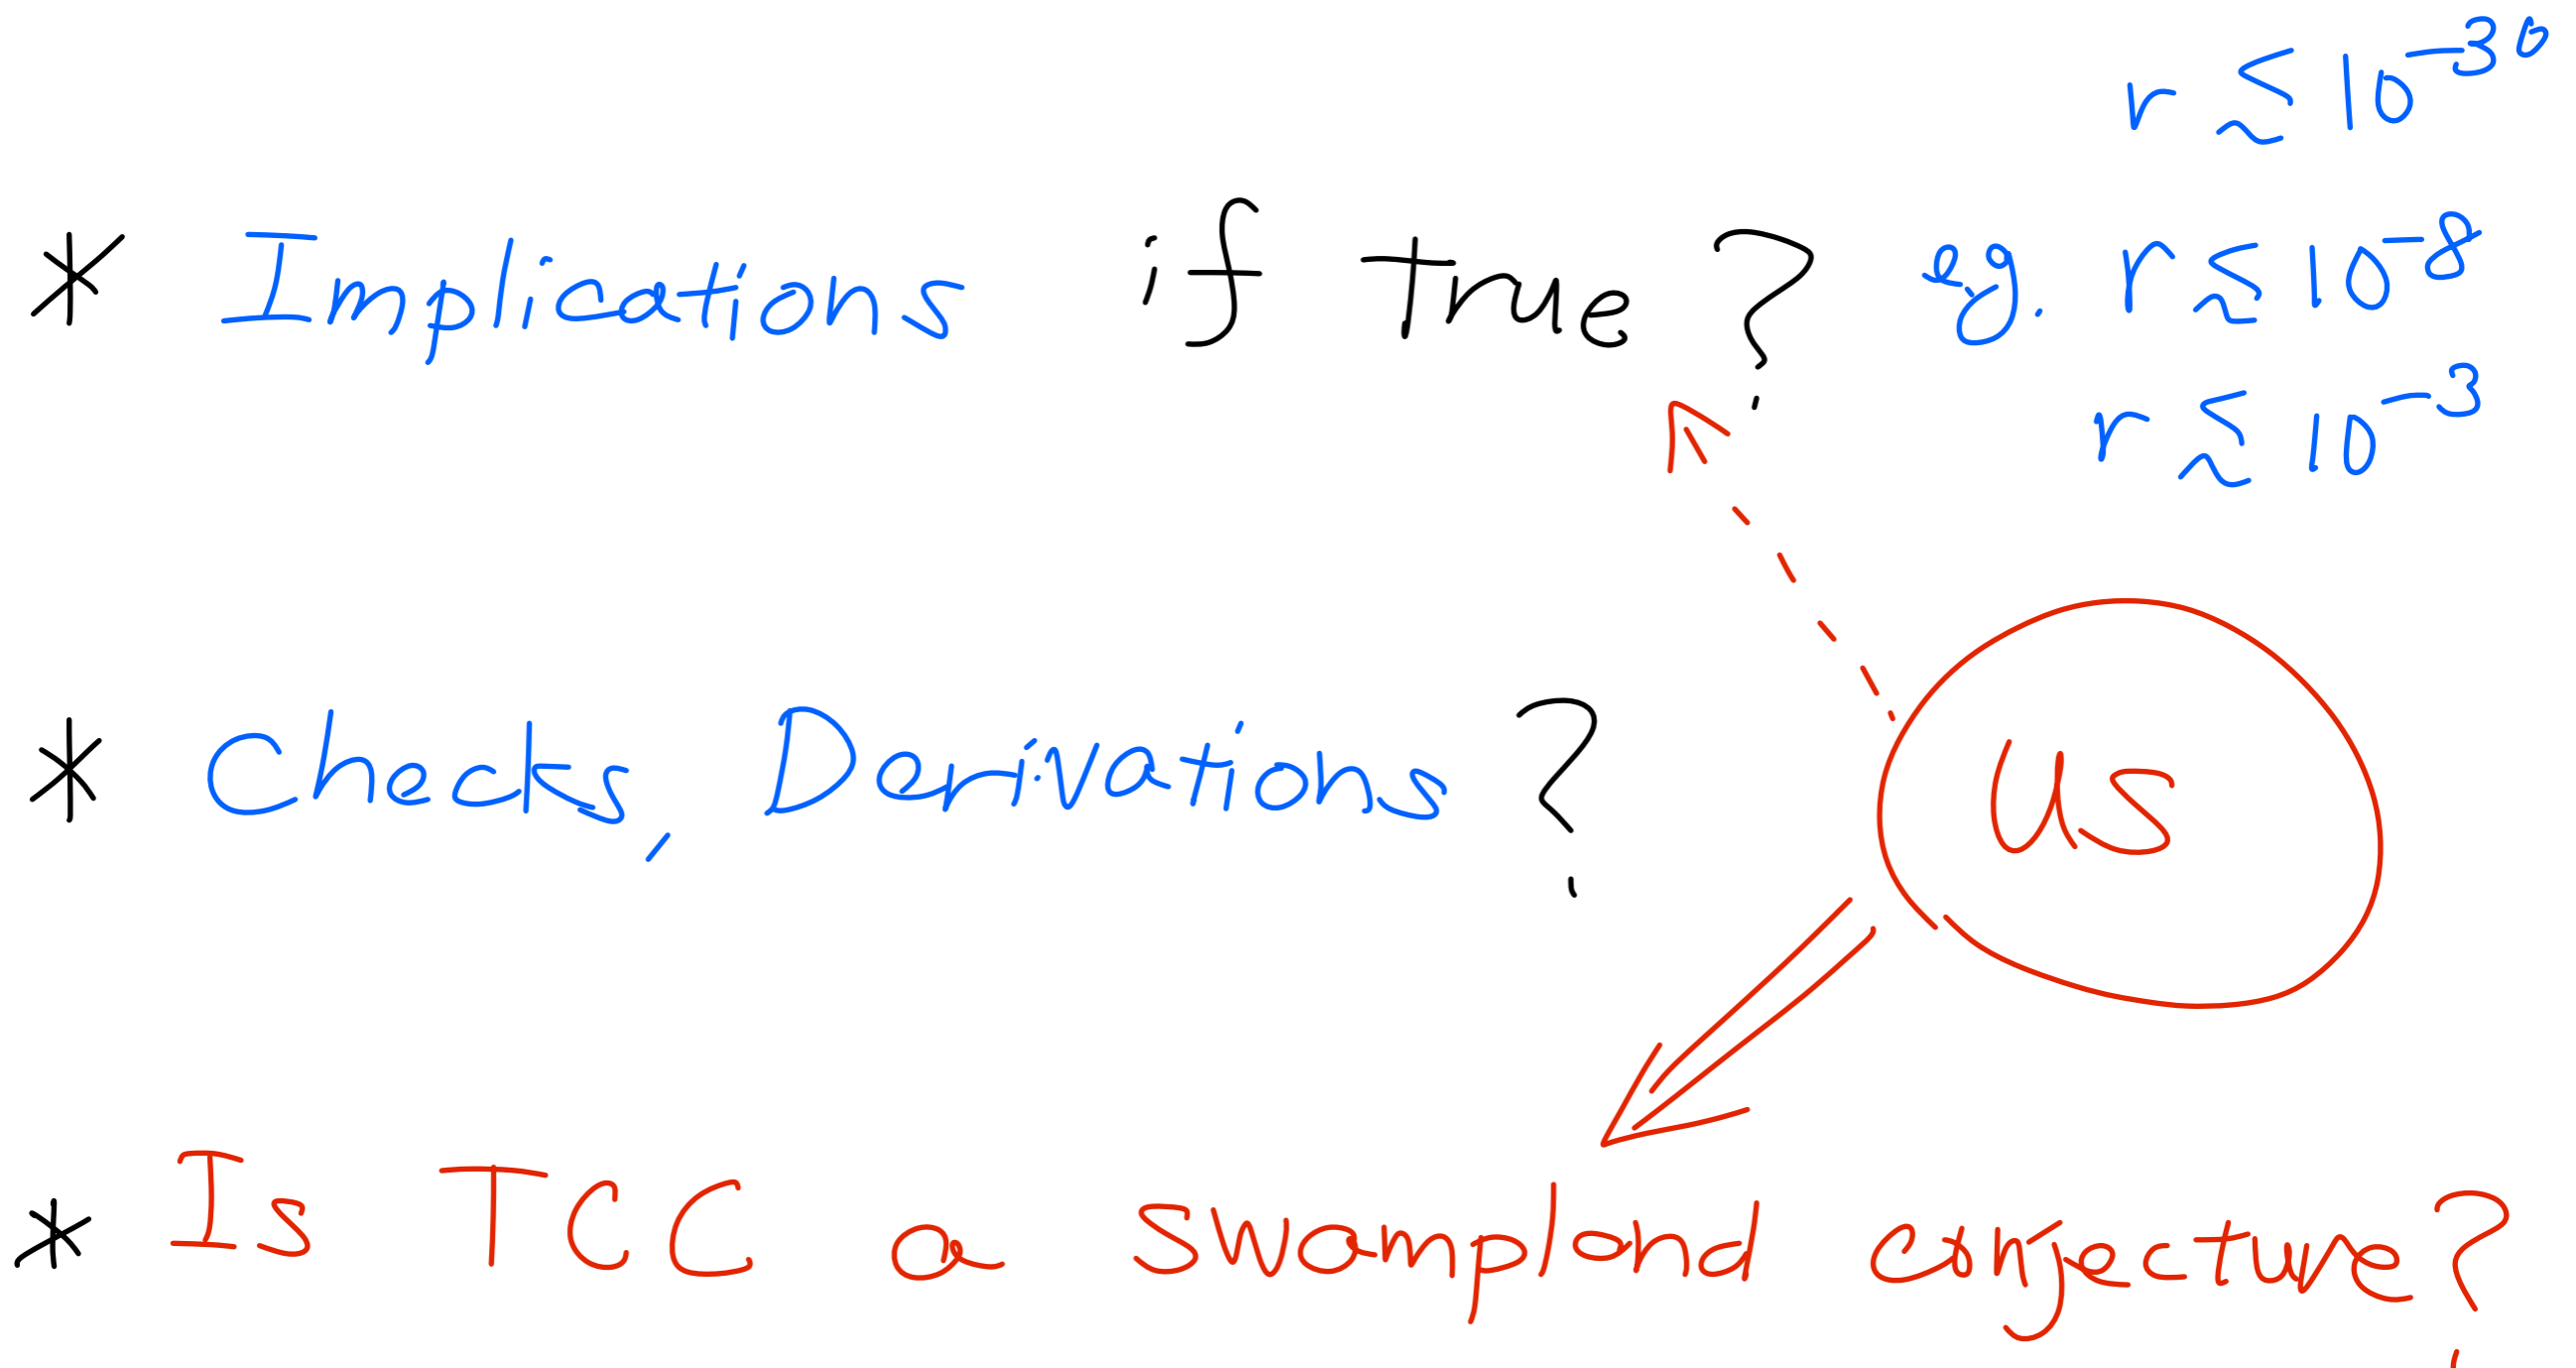 r ≲ 10⁻³⁰
* Implications if true ? eg. r ≲ 10⁻⁸
r ≲ 10⁻³
* Checks, Derivations ?
us
* Is TCC a swampland conjecture?